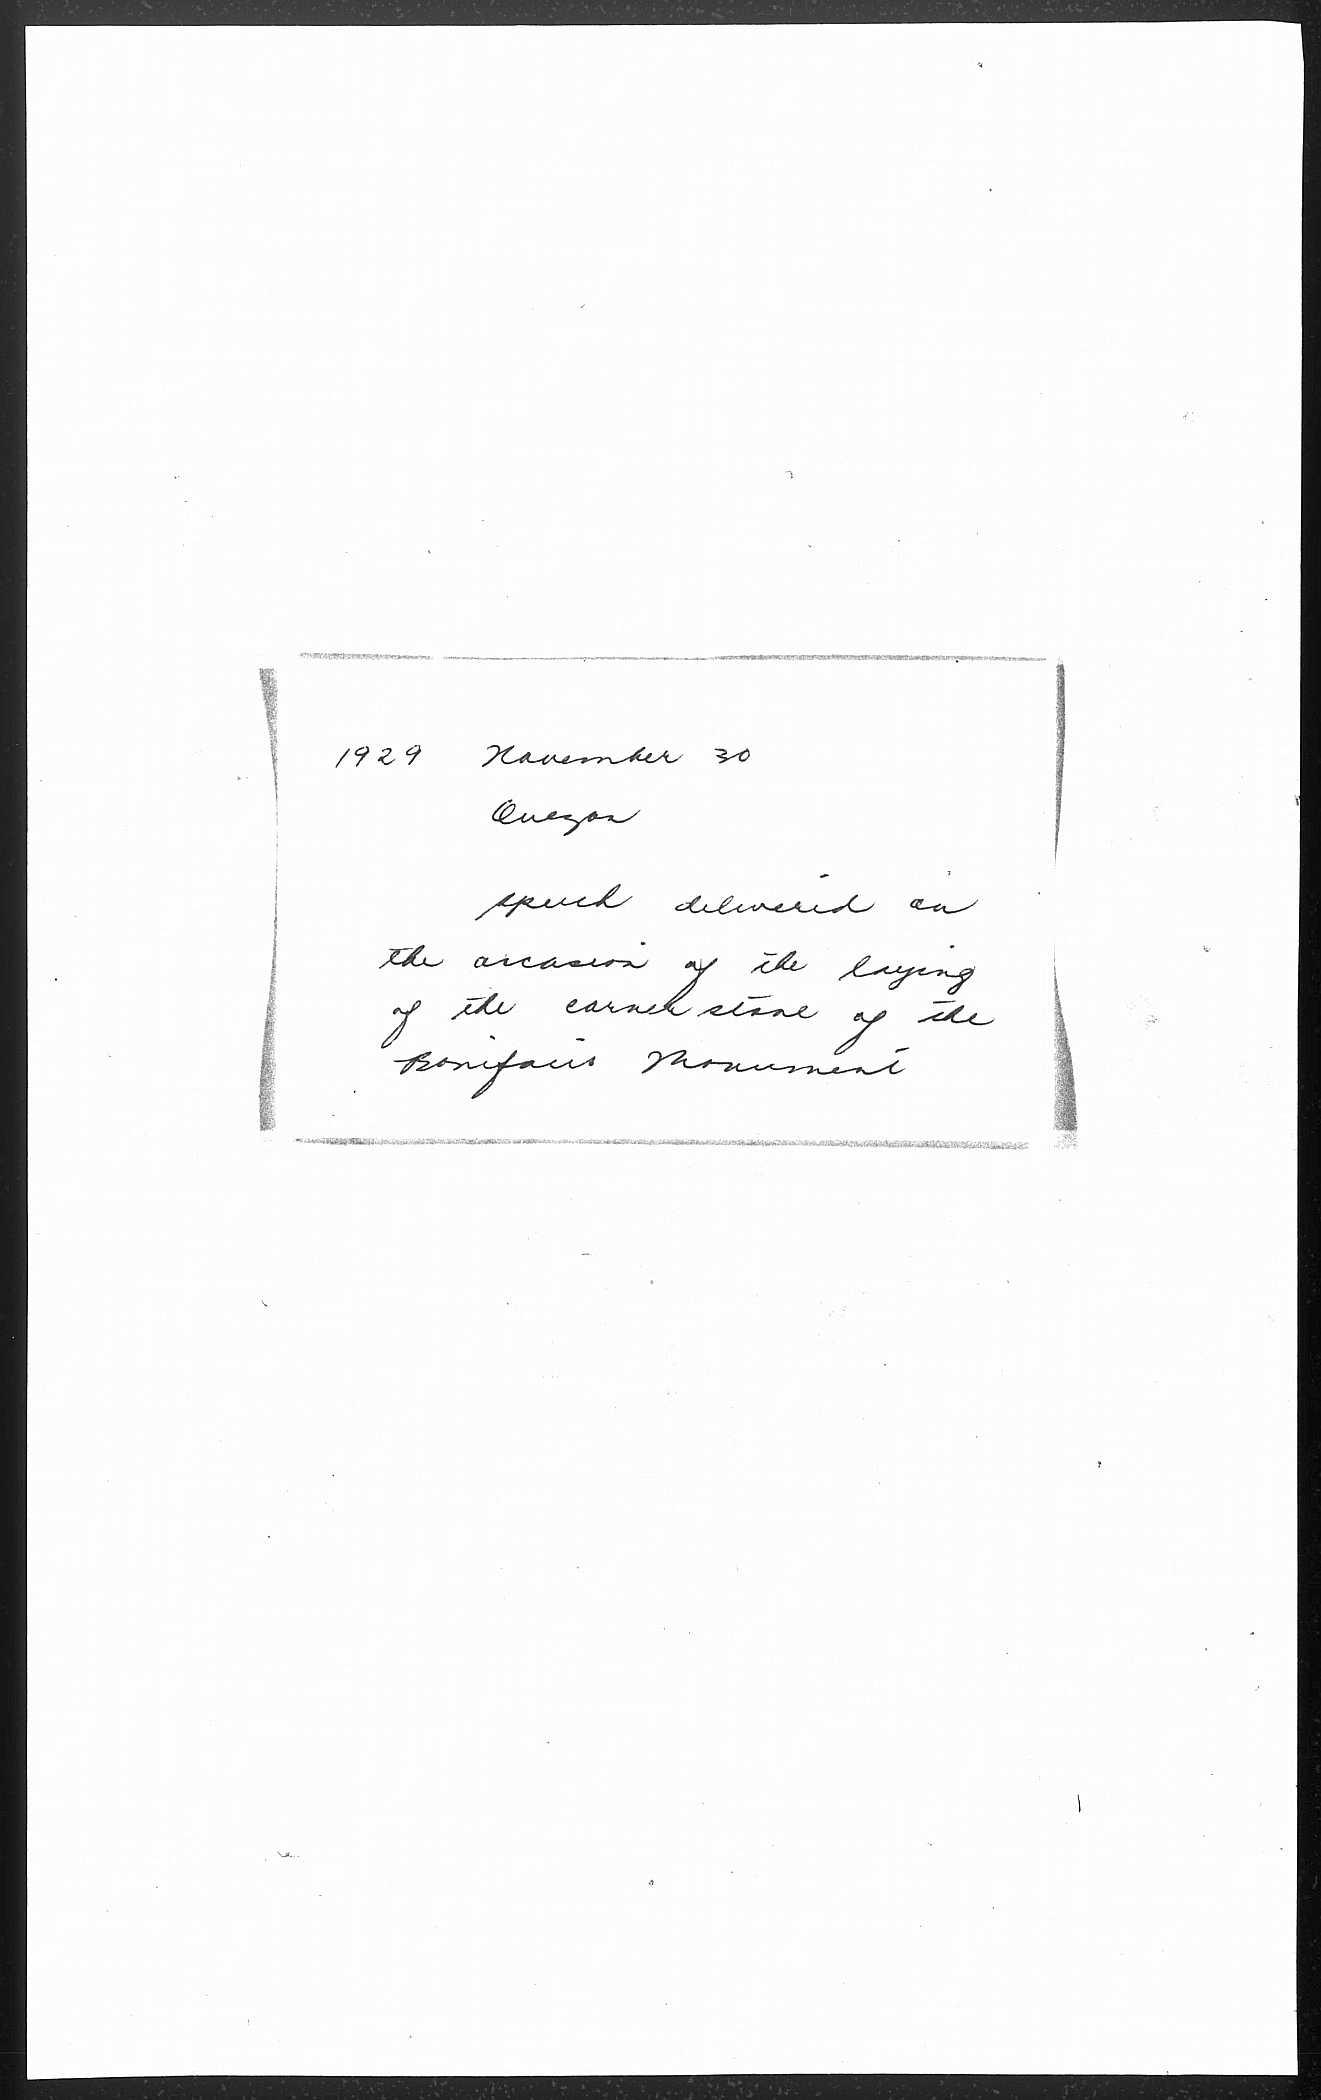 1929 November 30
Quezon
speech delivered on
the occasion of the laying
of the corner stone of the
Bonifacio Monument